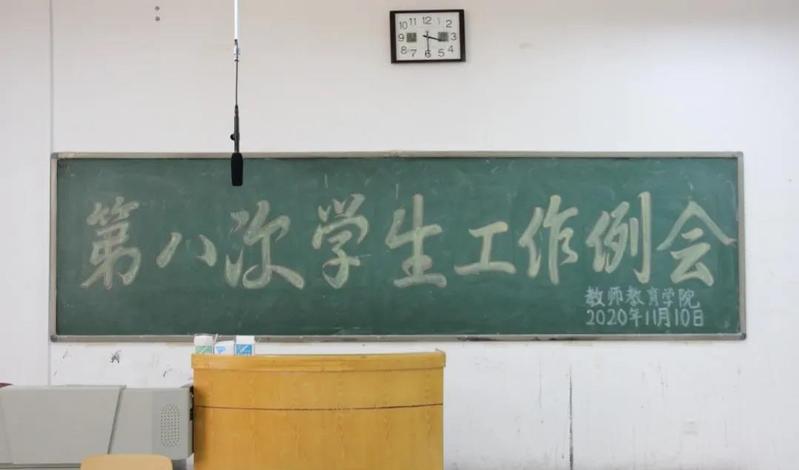 11 12 1
10 2
9 3
8 4
7 6 5
第八次学生工作例会
教师教育学院
2020年11月10日